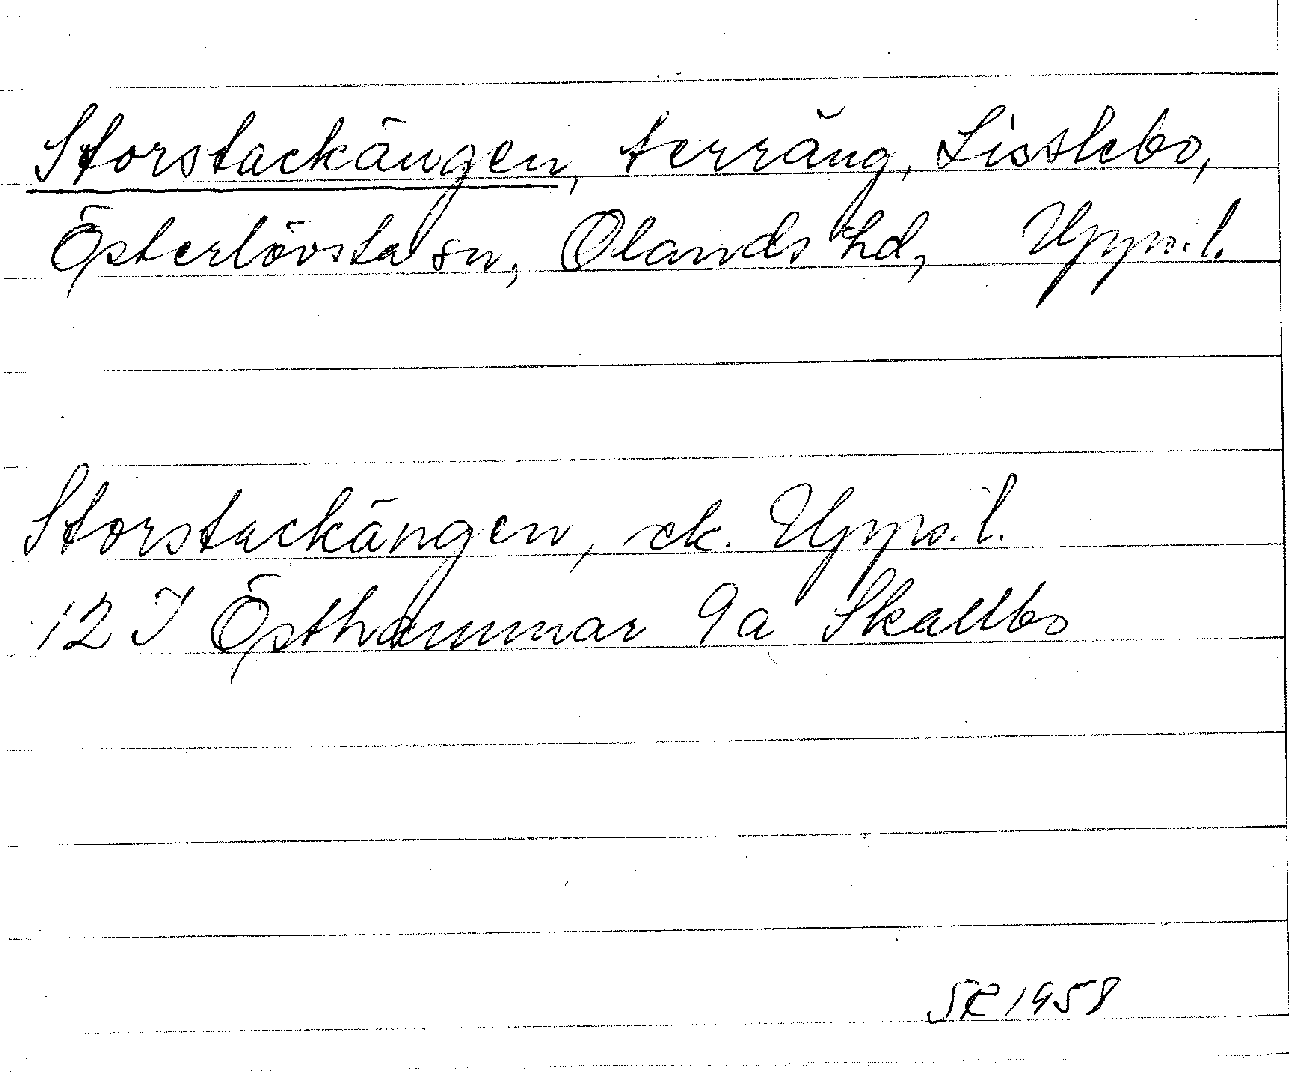 Storstackängen, terräng, Lisslebo,
Österlövsta sn, Olands hd, Upps. l.
Storstackängen, ek. Upps. l.
12 I Östhammar 9a Skallbo
SR 1958